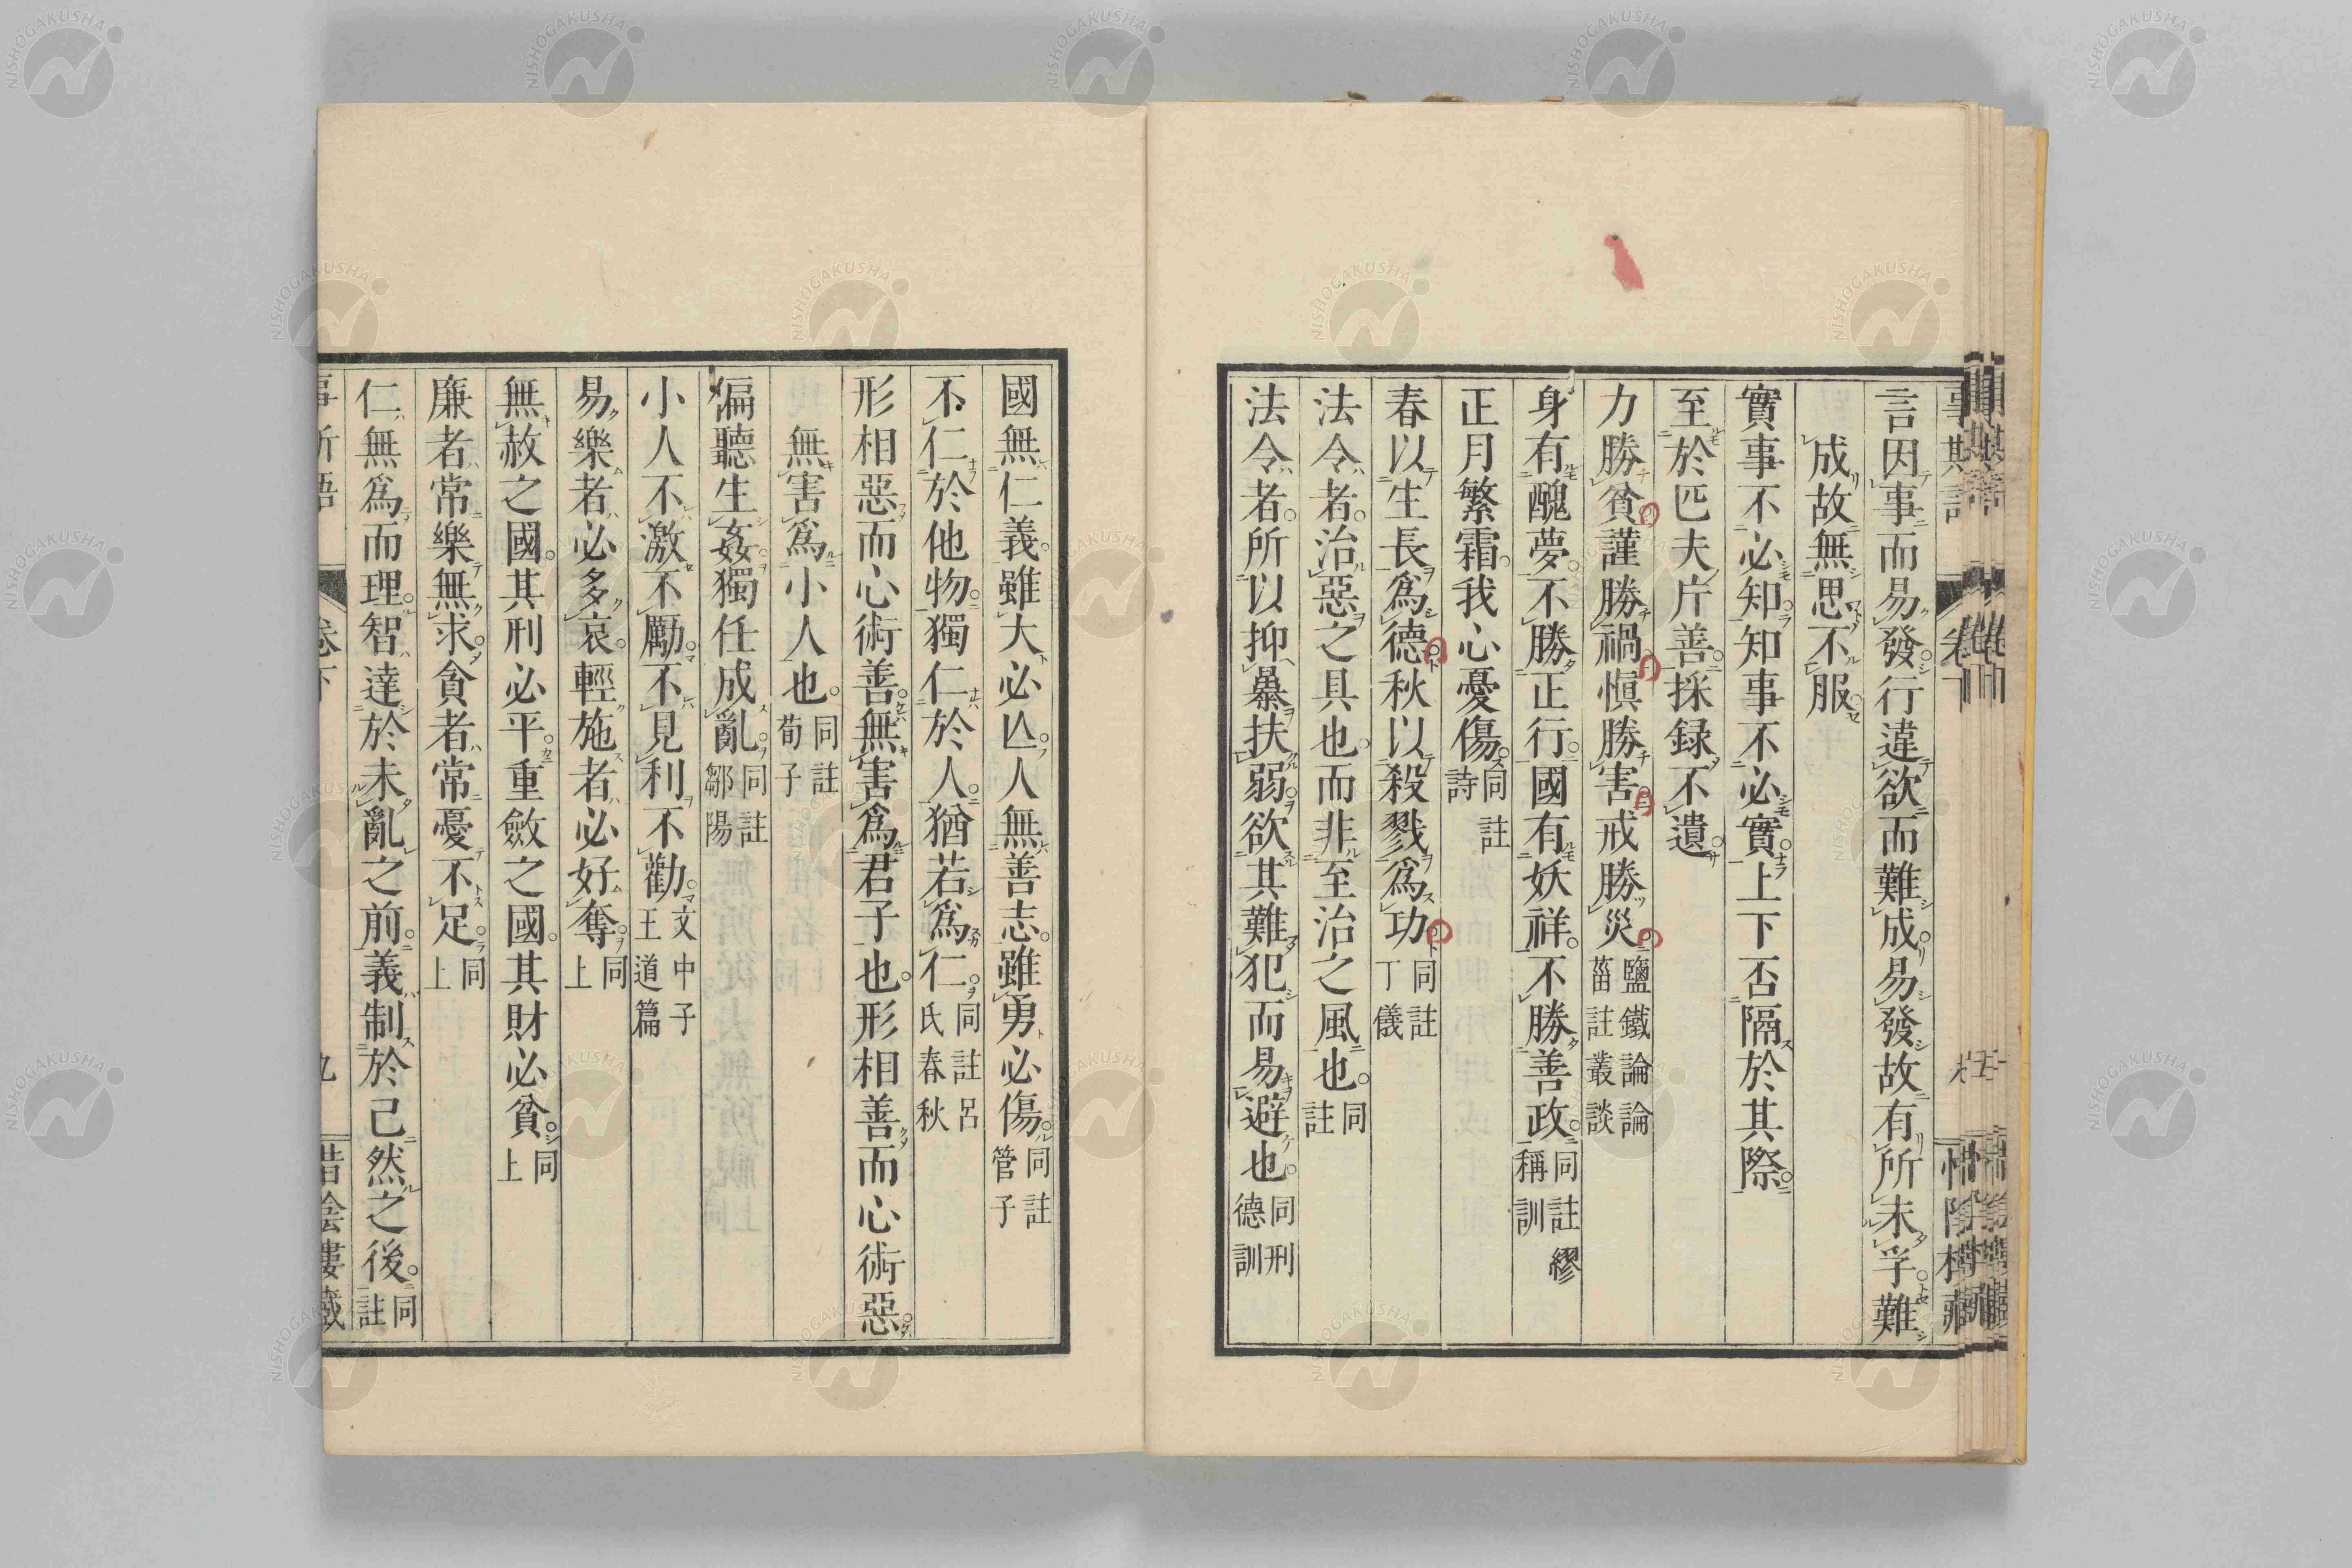 言因事而易發行違欲而難成易發故有所未孚難
成故無思不服
實事不必知知事不必實上下否隔於其際
至於匹夫片善採録不遺
力勝貧謹勝禍愼勝害戒勝災鹽鐵論論菑註叢談
身有醜夢不勝正行國有妖祥不勝善政同註繆稱訓
正月繁霜我心憂傷同註詩
春以生長爲德秋以殺戮爲功同註丁儀
法令者治惡之具也而非至治之風也同註
法令者所以抑暴扶弱欲其難犯而易避也同刑德訓
國無仁義雖大必亾人無善志雖勇必傷同註管子
不仁於他物獨仁於人猶若爲仁同註呂氏春秋
形相惡而心術善無害爲君子也形相善而心術惡
無害爲小人也同註荀子
偏聽生姦獨任成亂同註鄒陽
小人不激不勵不見利不勸文中子王道篇
易樂者必多哀輕施者必好奪同上
無赦之國其刑必平重斂之國其財必貧同上
廉者常樂無求貪者常憂不足同上
仁無爲而理智達於未亂之前義制於已然之後同註
卷下
九
NISHOGAKUSHA